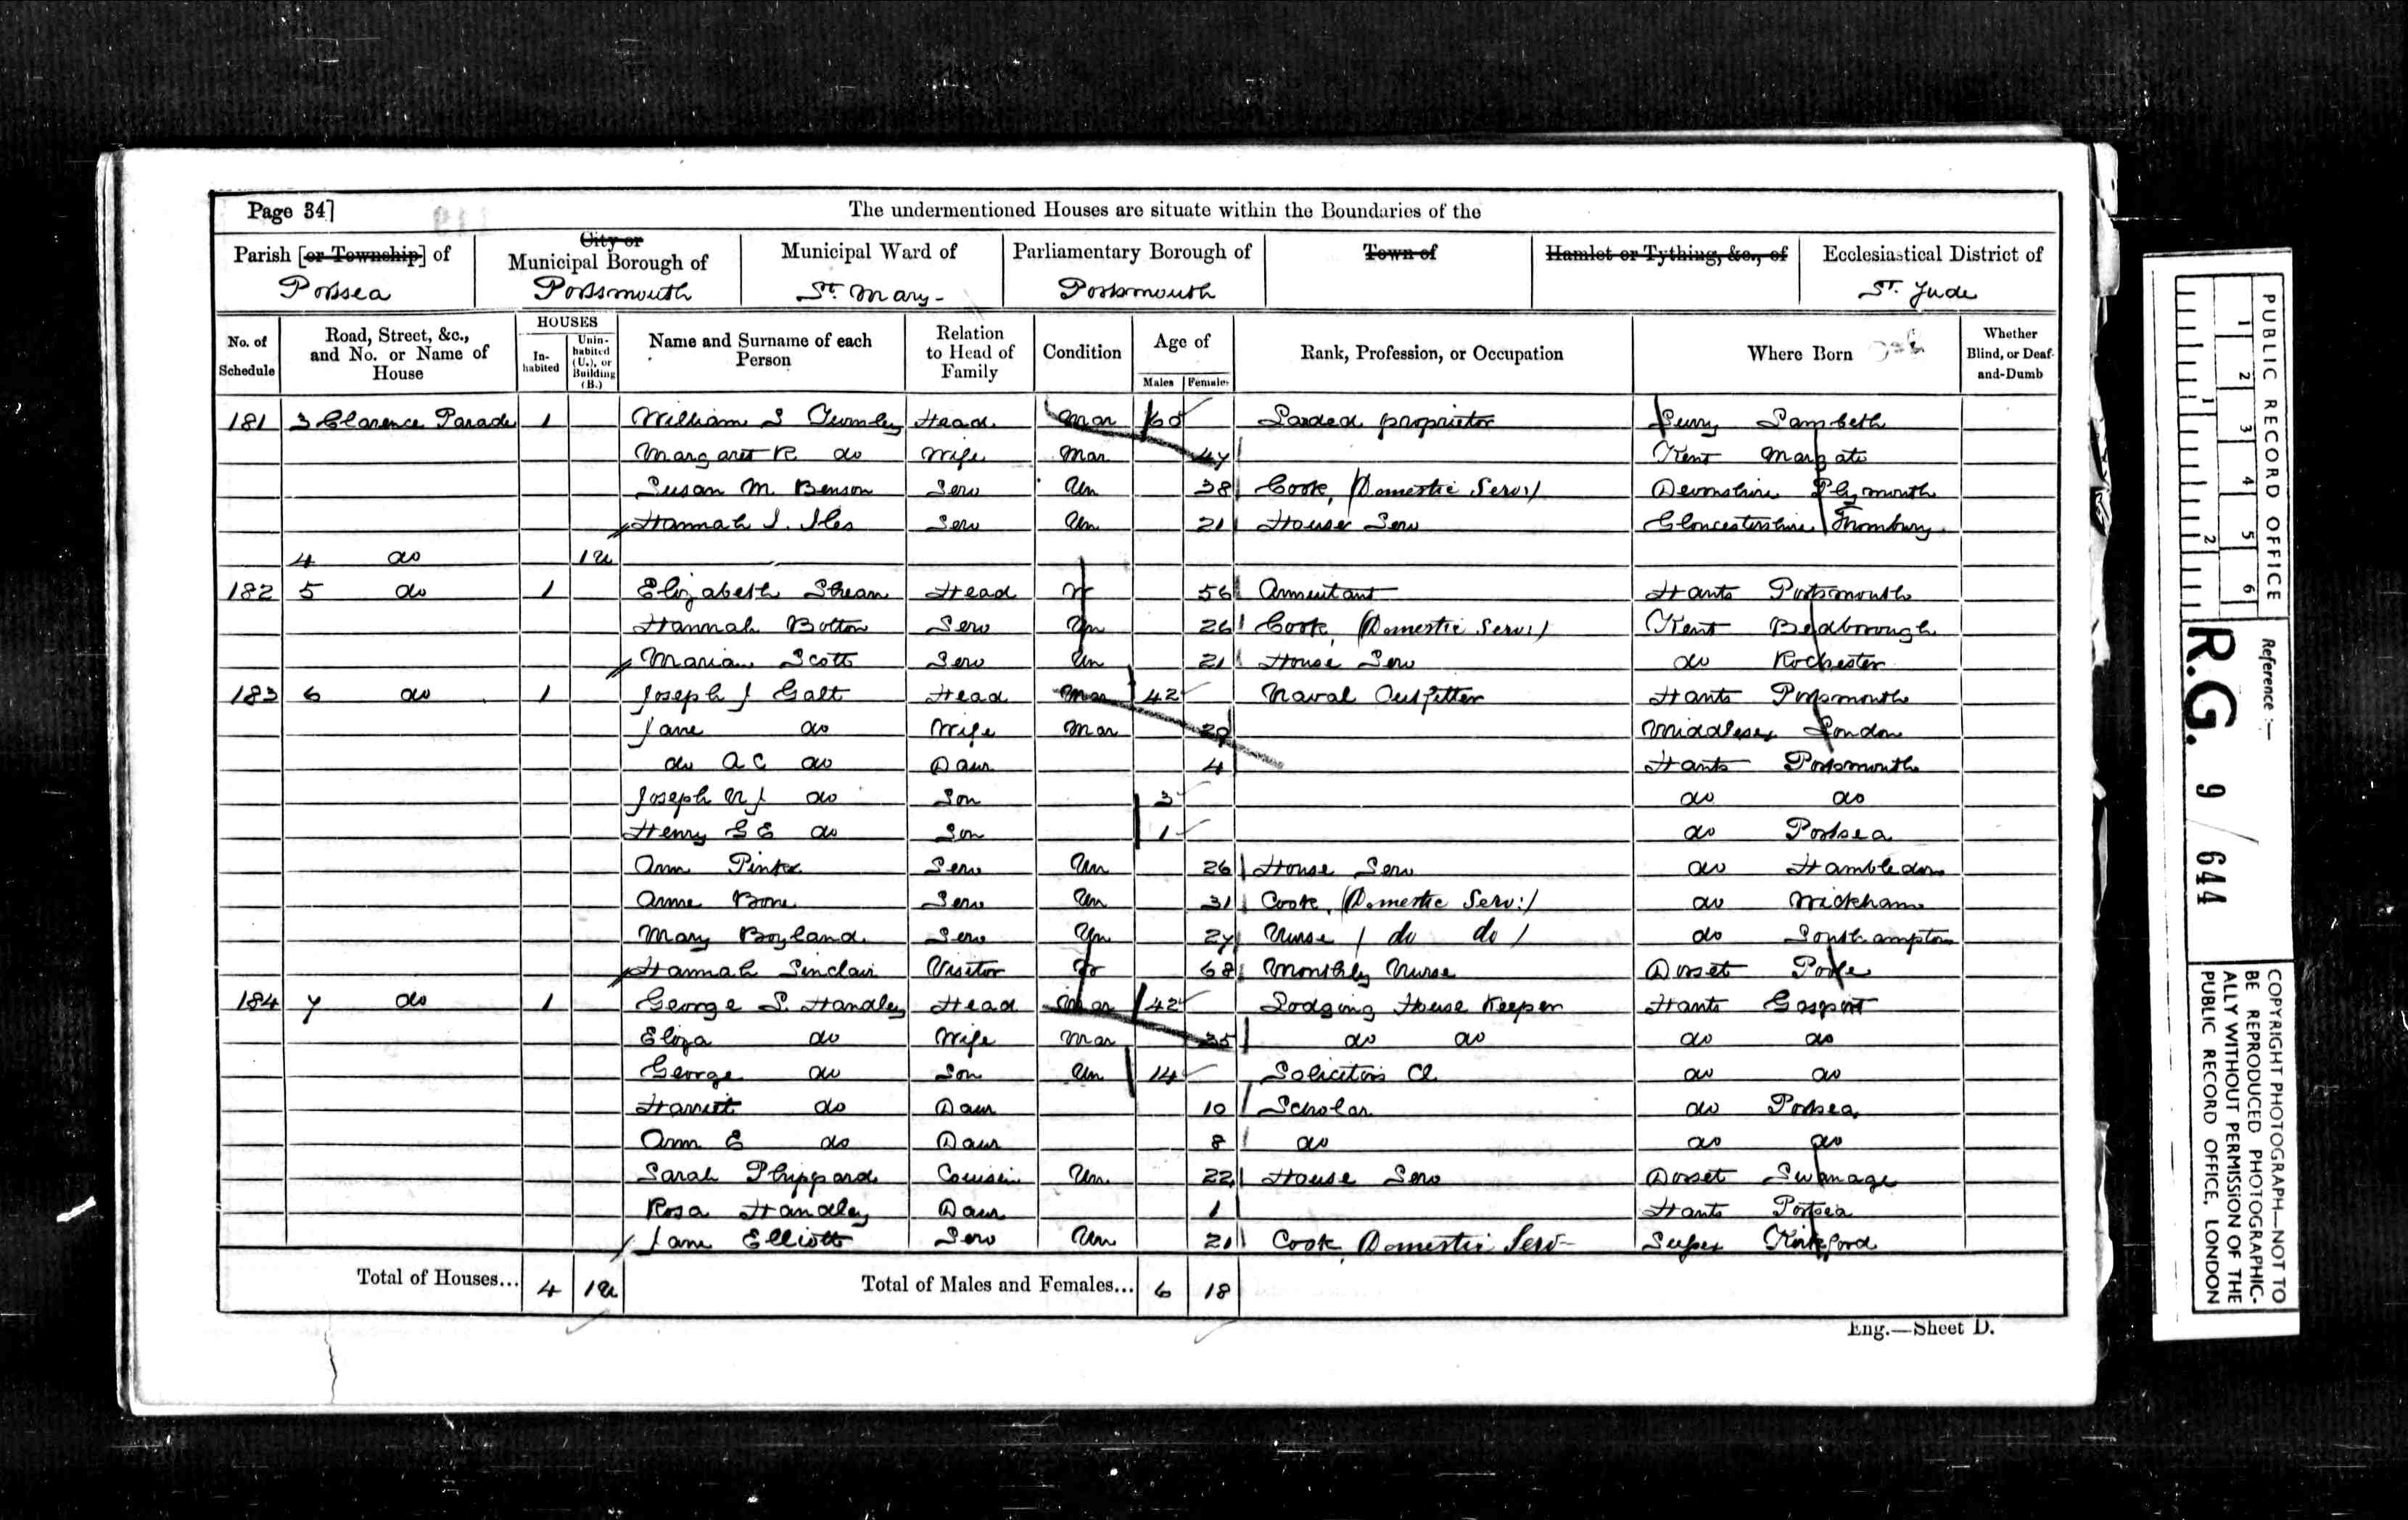 Page 34]
The undermentioned Houses are situate within the Boundaries of the
Parish [or Township] of Portsea
City or Municipal Borough of Portsmouth
Municipal Ward of St. Mary-
Parliamentary Borough of Portsmouth
Town of
Hamlet or Tything, &c., of
Ecclesiastical District of St. Jude
No. of Schedule
Road, Street, &c., and No. or Name of House
HOUSES
In-habited
Unin-habited (U.), or Building (B.)
Name and Surname of each Person
Relation to Head of Family
Condition
Age of
Males
Females
Rank, Profession, or Occupation
Where Born
Whether Blind, or Deaf-and-Dumb
181 3 Clarence Parade 1 William S Head Mar 60 Landed proprietor Surry Lambeth
Margaret R do Wife Mar 47 Kent Margate
Susan M. Benson Serv Un 38 Cook, (Domestic Serv:) Devonshire Plymouth
Hannah I. Iles Serv Un 21 House Serv Gloucestershire Thornbury
4 do 1u
182 5 do 1 Elizabeth Head W 56 Annuitant Hants Portsmouth
Hannah Botton Serv Un 26 Cook, (Domestic Serv:) Kent
Marian Scott Serv Un 21 House Serv do Rochester
183 6 do 1 Joseph J Galt Head Mar 42 Naval Outfitter Hants Portsmouth
Jane do Wife Mar 29 Middlesex London
do A C do Daur 4 Hants Portsmouth
Joseph N J do Son 3 do do
Henry G E do Son 1 do Portsea
Ann Serv Un 26 House Serv do Hambledon
Anne Bone Serv Un 31 Cook, (Domestic Serv:) do Wickham
Mary Boyland Serv Un 27 Nurse ( do do ) do Southampton
Hannah Sinclair Visitor W 68 Monthly Nurse Dorset Poole
184 7 do 1 George S. Handley Head Mar 42 Lodging House Keeper Hants Gosport
Eliza do Wife Mar 35 do do do do
George do Son Un 14 Solicitors Cl do do
Harriet do Daur 10 Scholar do Portsea
Ann E do Daur 8 do do do
Sarah Phippard Cousin Un 22 House Serv Dorset Swanage
Rosa Handley Daur 1 Hants Portsea
Jane Elliott Serv Un 21 Cook, Domestic Serv- Sussex Kirkford
Total of Houses... 4 1u
Total of Males and Females... 6 18
Eng.—Sheet D.
PUBLIC RECORD OFFICE
1 2 3 4 5 6
1 2
Reference :—
R.G. 9 / 644
COPYRIGHT PHOTOGRAPH—NOT TO BE REPRODUCED PHOTOGRAPHIC-ALLY WITHOUT PERMISSION OF THE PUBLIC RECORD OFFICE, LONDON